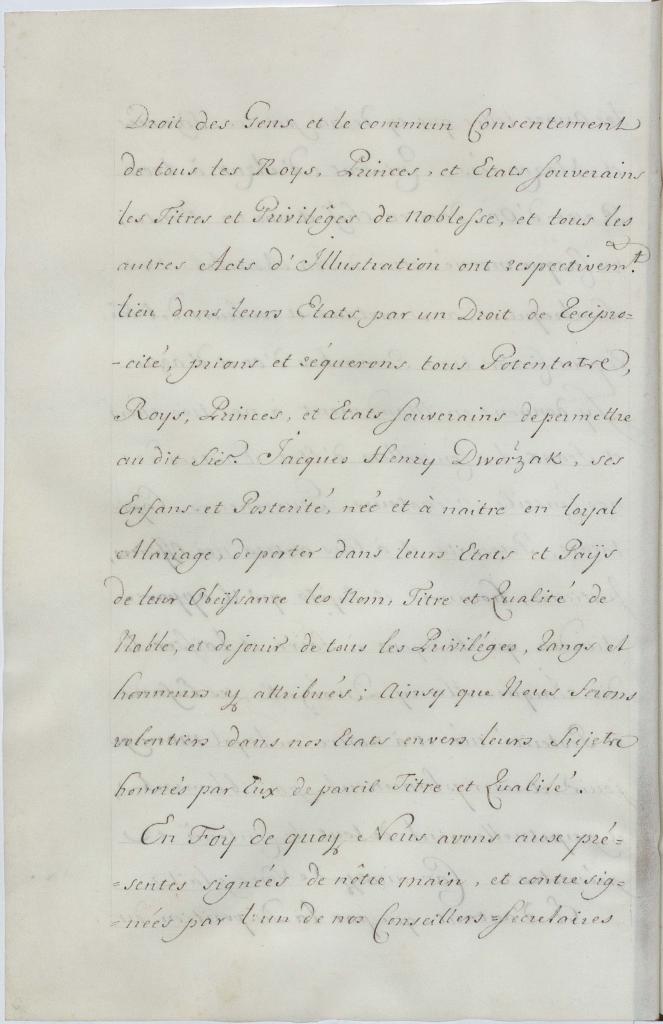 Droit des Gens et le commun Consentement
de tous les Roys, Princes, et Etats souverains
les Titres et Privilêges de Noblesse, et tous les
autres Acts d'Illustration ont respectivemt.
lieu dans leurs Etats par un Droit de Recipro=
-cité, prions et réquerons tous Potentats,
Roys, Princes, et Etats souverains de permettre
au dit Sier. Jacques Henry Dworžak, ses
Enfans et Posterité, neé et à naitre en loyal
Mariage, de porter dans leurs Etats et Païs
de leur Obeïssance les Nom, Titre et Qualité de
Noble, et de jouir de tous les Priviléges, Rangs et
honneurs y attribués; Ainsy que Nous ferons
volontiers dans nos Etats envers leurs Sujets
honorés par Eux de pareil Titre et Qualité.
En Foy de quoy Nous avons aux pré=
=sentes signeés de nôtre main, et contresig=
=neés par l'un de nos Conseillers=Secretaires